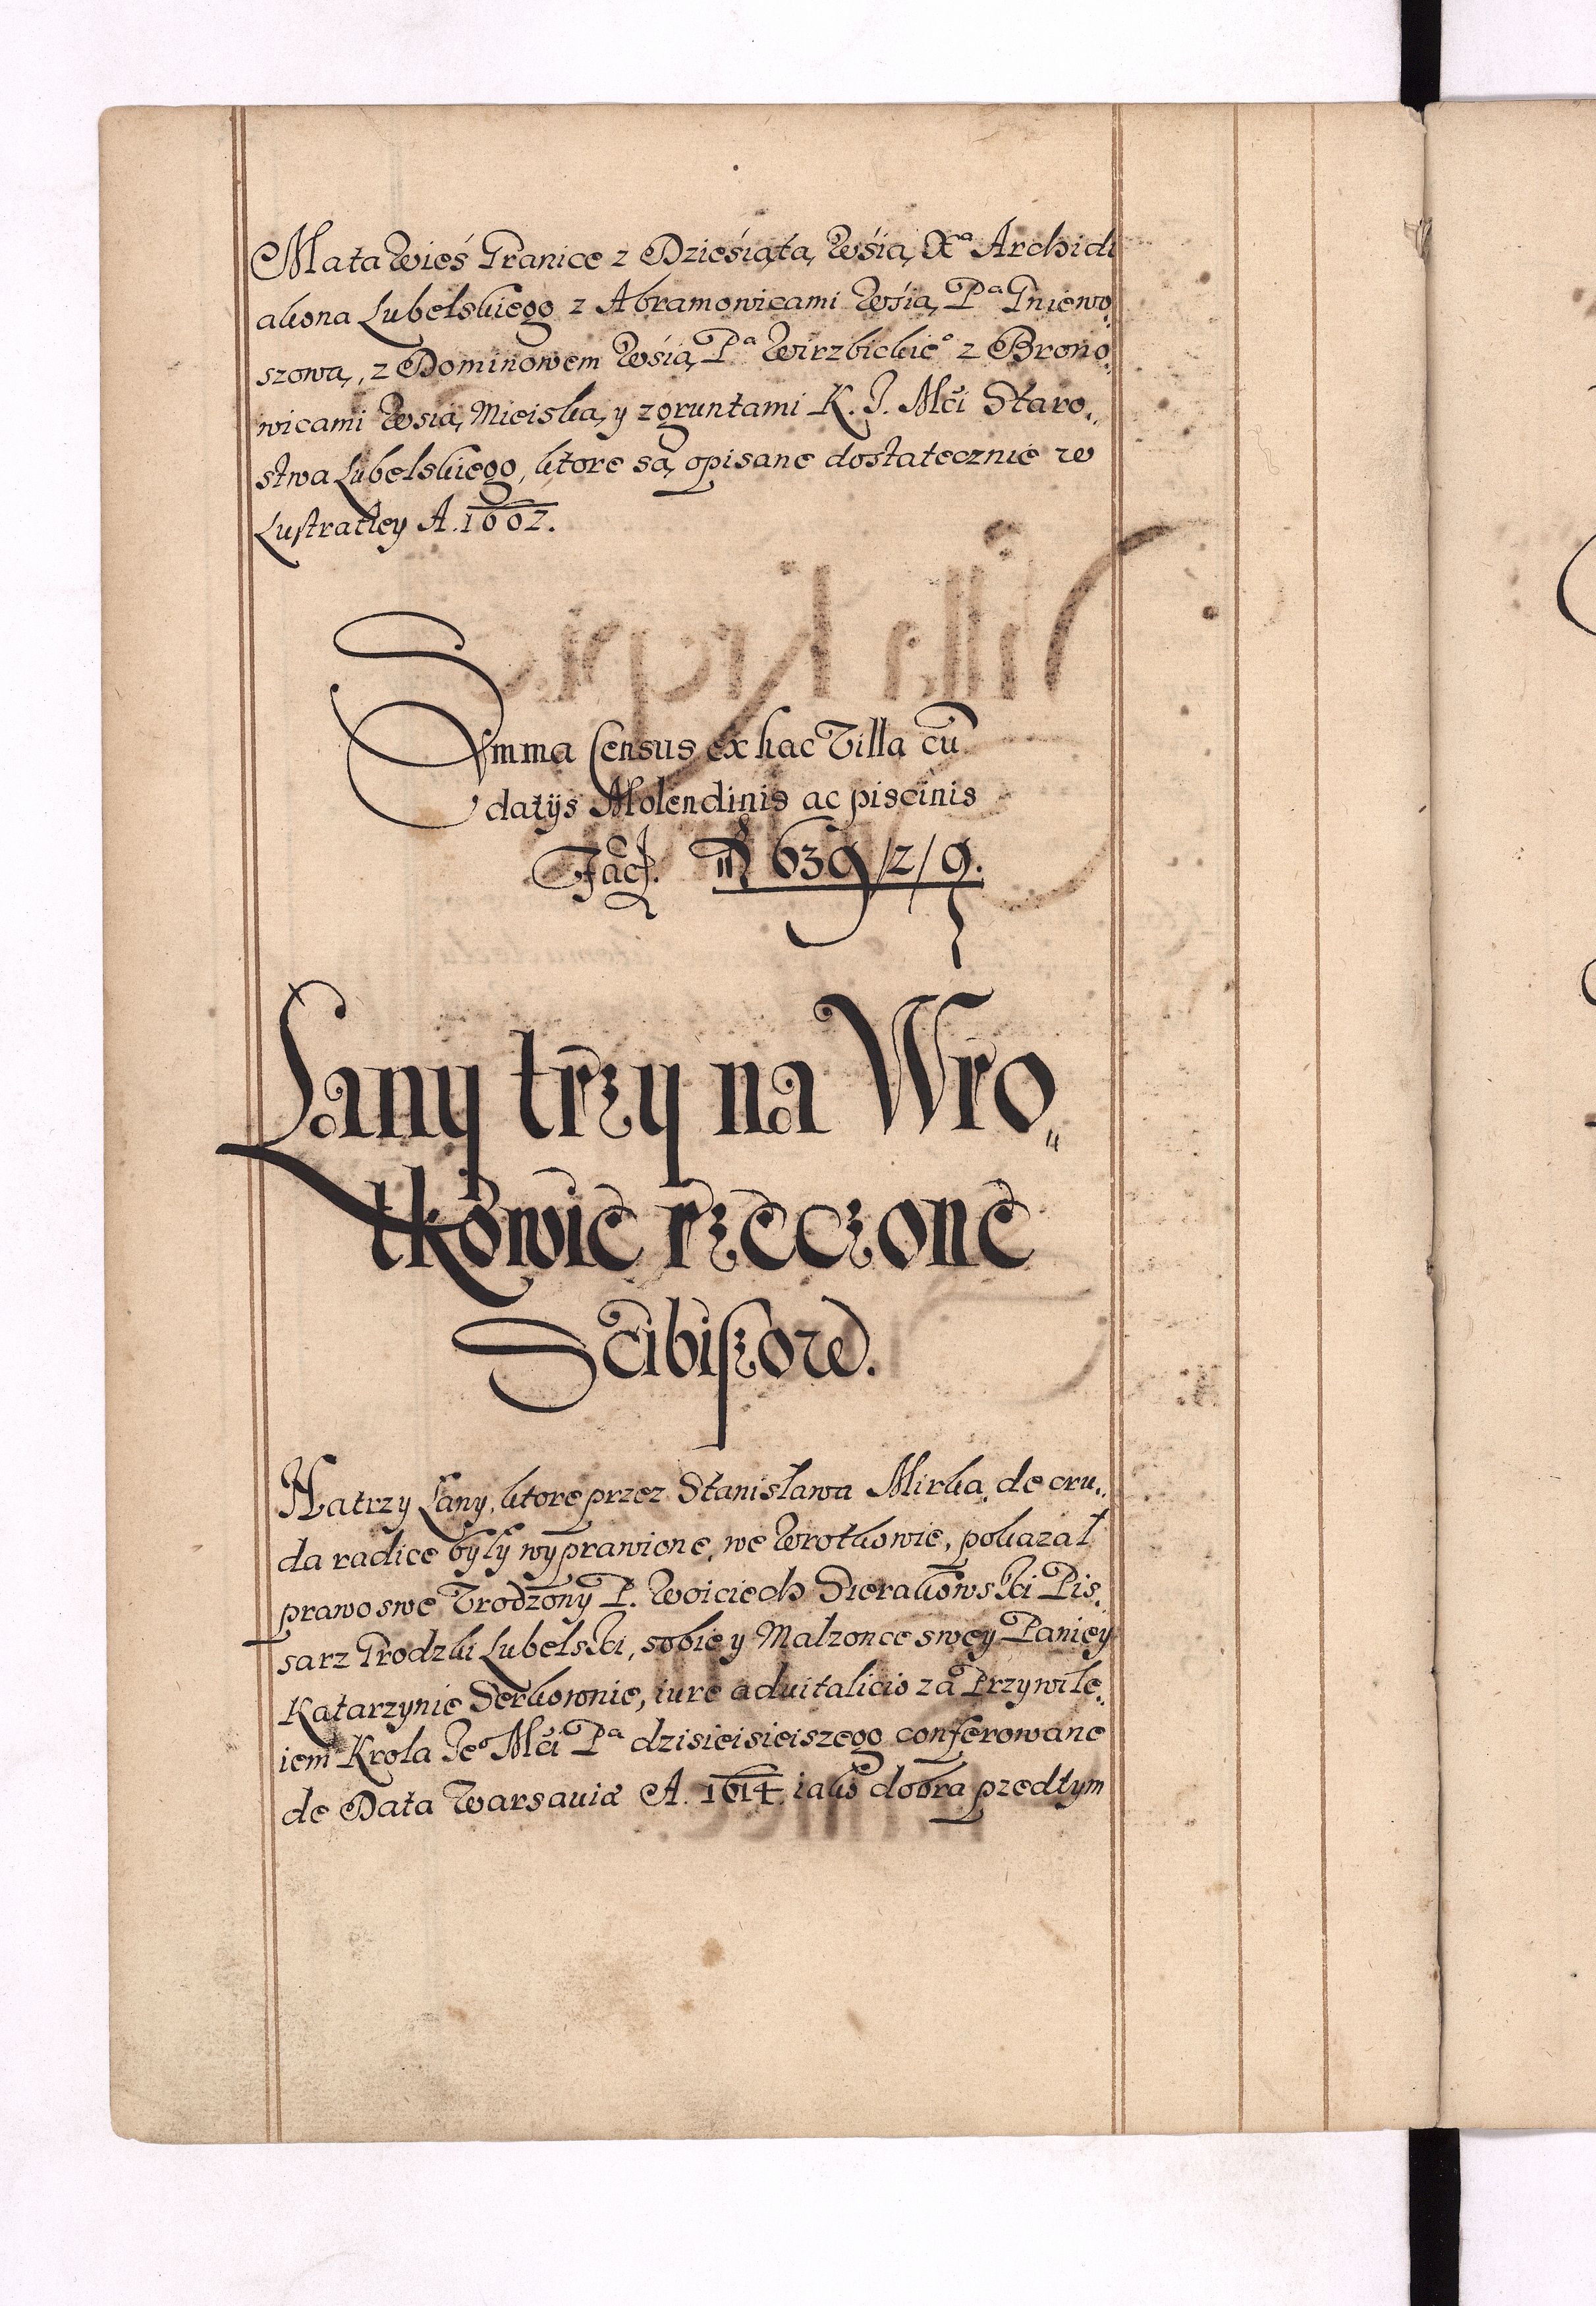 Mata Wieś Granice z Dziesiątą Wsią X<sup>a</sup> Archidi
akona Lubelskiego z Abramowicami Wsią P<sup>a</sup> Gniewo„
szową, z Dominowem Wsią P<sup>a</sup> Wirzbickie<sup>o</sup> z Brono„
wicami Wsią Mieiską y z gruntami K. J. Mći Staro„
stwa Lubelskiego, ktore są opisane dostatecznie w
Lustratiey A. 1602.
Summa Census ex hac Villa cū
datijs Molendinis ac piscinis
Fac̃. 639/2/9.
Łany trzy na Wro„
tkowie rzeczone
Scibiszow.
Na trzy Łany, ktore przez Stanisława Mirka de cru„
da radice były wyprawione, we Wrotkowie, pokazał
prawo swe Vrodzony P. Woiciech Sierakowski Pis„
sarz Grodzki Lubelski, sobie y Malzonce swey Paniey
Katarzynie Serkownie, iure aduitalicio za Przywile„
iem Krola Je<sup>o</sup> Mći P<sup>a</sup> dzisieisieiszego conferowane
de Data Warsauiæ A. 1614. iako dobra przedtym